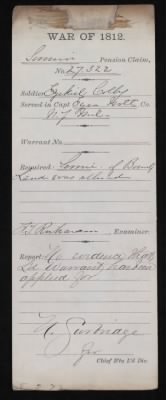 WAR OF 1812.
Pension Claim,
No. 27,322
Soldier Ezekiel Colby
Served in Capt Ezra Co.
N.Y. Mil.
Warrant No.
Required: of Bounty
Land was allowed
Examiner.
Report: No evidence that
Ld Warrant has been
applied for
Chief Wts Ld Div.